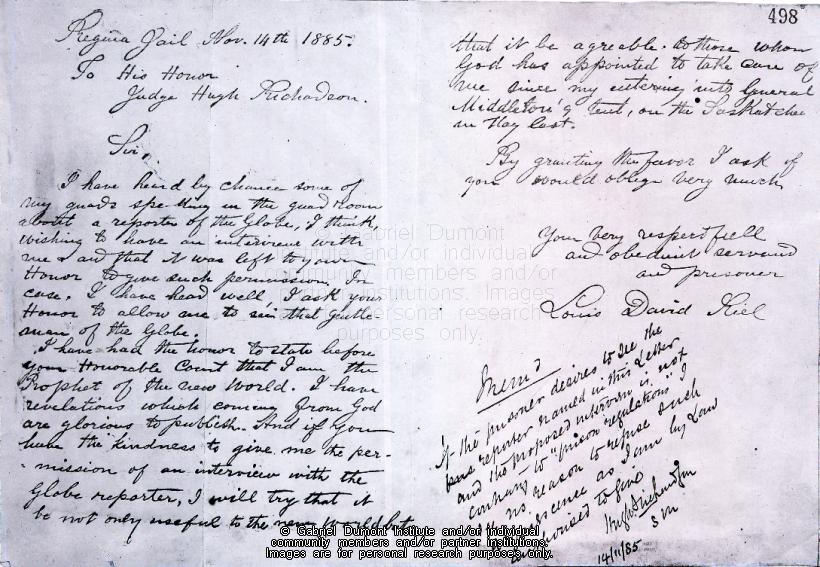 498
Regina Jail Nov. 14th 1885.
To His Honor
Judge Hugh Richardson.
Sir,
I have heard by chance some of
my guards speaking in the guard room
about a reporter of the Globe, I think,
wishing to have an interview with
me and that it was left to your
Honor to give such permission. In
case, I have heard well, I ask your
Honor to allow me to see that gentle-
man of the Globe.
I have had the honor to state before
your Honorable Court that I am the
Prophet of the new World. I have
revelations which coming from God
are glorious to publish. And if you
have the kindness to give me the per-
-mission of an interview with the
Globe reporter, I will try that it
be not only useful to the new World but
that it be agreable to those whom
God has appointed to take care of
me since my entering into General
Middleton's tent, on the Saskatchewan
in May last.
By granting the favor I ask of
you would oblige very much,
Your very respectfull
and obedient servant
and prisoner
Louis David Riel
Memo
If the prisoner desires to see the
reporter named in this Letter
and the proposed interview is not
contrary to "prison regulations" I
see no reason to refuse such
as I am by Law
to give
Hugh Richardson
S M
14/11/85
© Gabriel Dumont Institute and/or individual
community members and/or partner institutions.
Images are for personal research purposes only.
© Gabriel Dumont
Institute and/or individual
community members and/or
partner institutions. Images
are for personal research
purposes only.